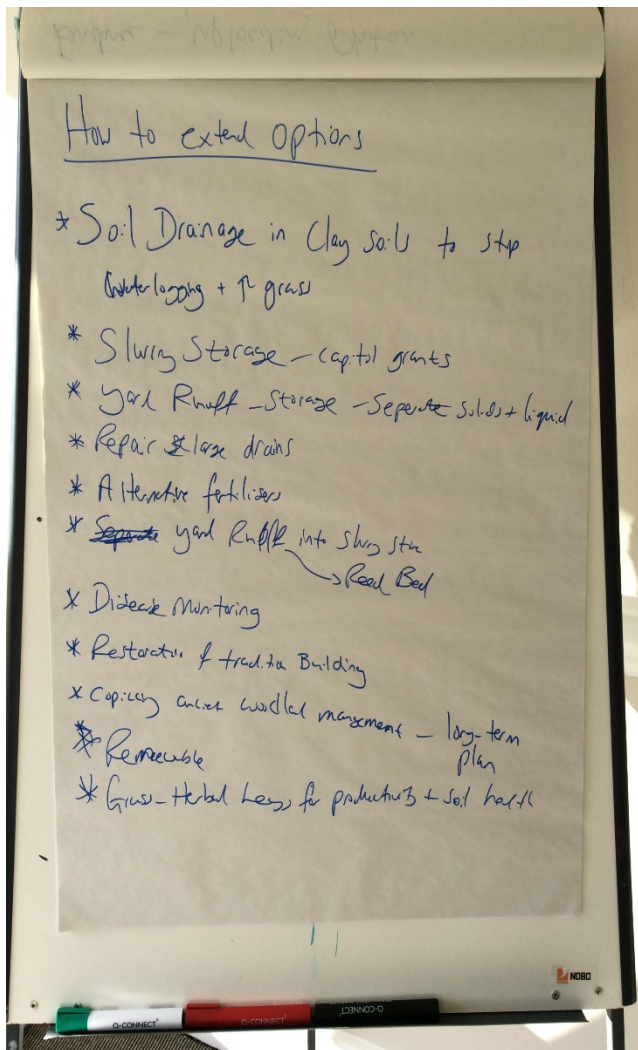 How to extend options
* Soil Drainage in Clay soils to stop
waterlogging + ↑ grass
* Slurry Storage - capitol grants
* Yard Runoff - Storage - Seperate solids + liquid
* Repair large drains
* Alternative fertilisers
* Separate yard Runoff into slurry store
→ Reed Bed
* Disease Monitoring
* Restoration of tradition Building
* Copicing ancient woodland management - long-term
plan
* Renewable
* Grass - Herbal Leys for productivity + soil health
NOBO
Q-CONNECT
Q-CONNECT
Q-CONNECT